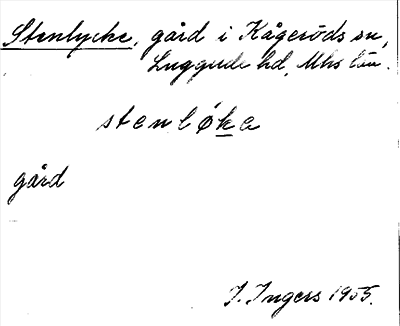 Stenlycke, gård i Kågeröds sn,
Luggude hd, Mhs län.
stenløka
gård
I. Ingers 1955.